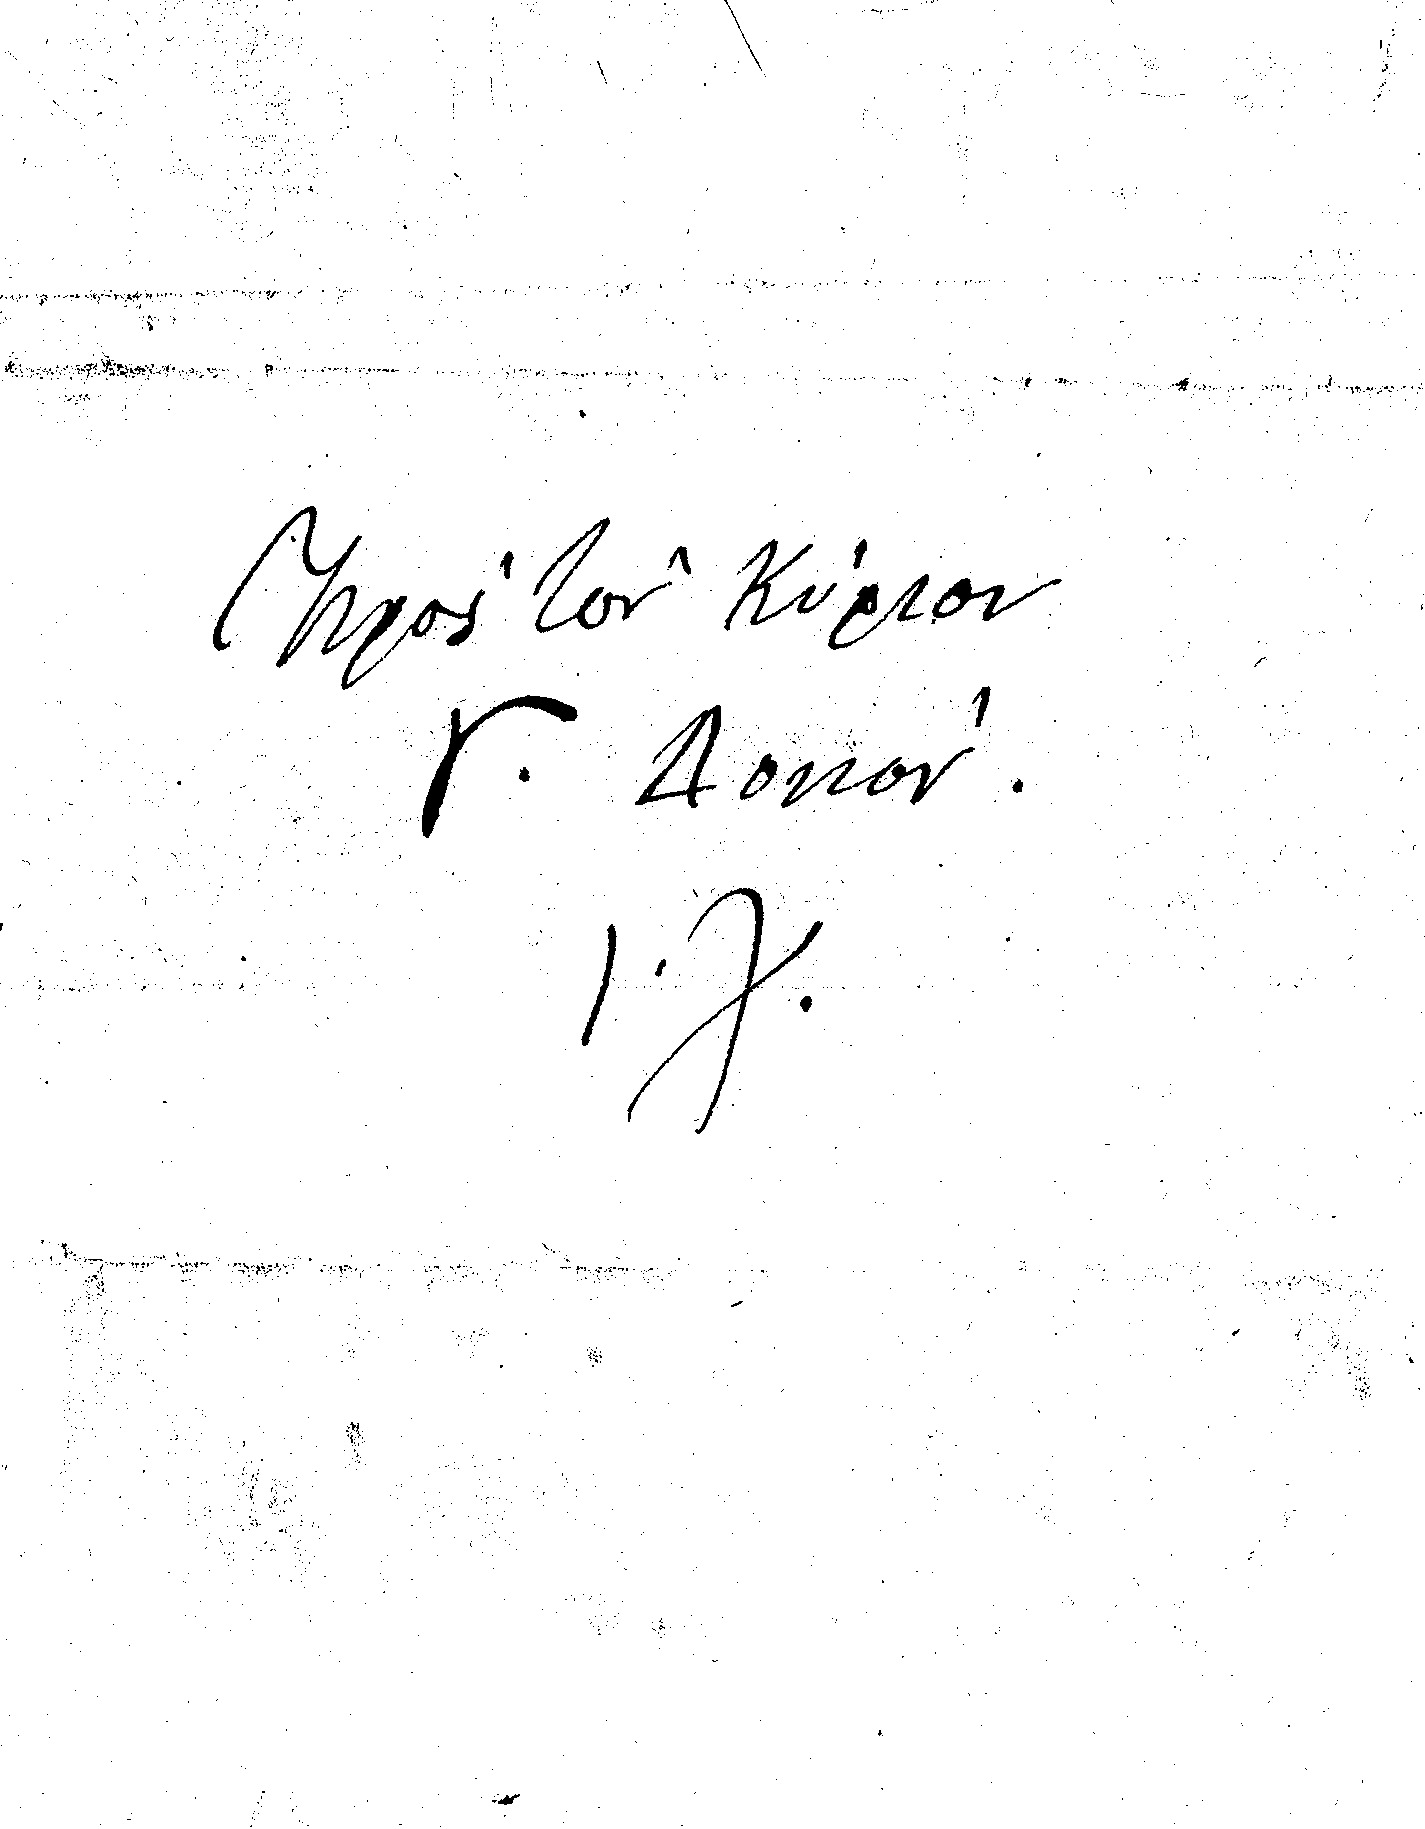 Πρὸς τὸν Κύριον
Γ. Δοκόν.
Ι. Χ.